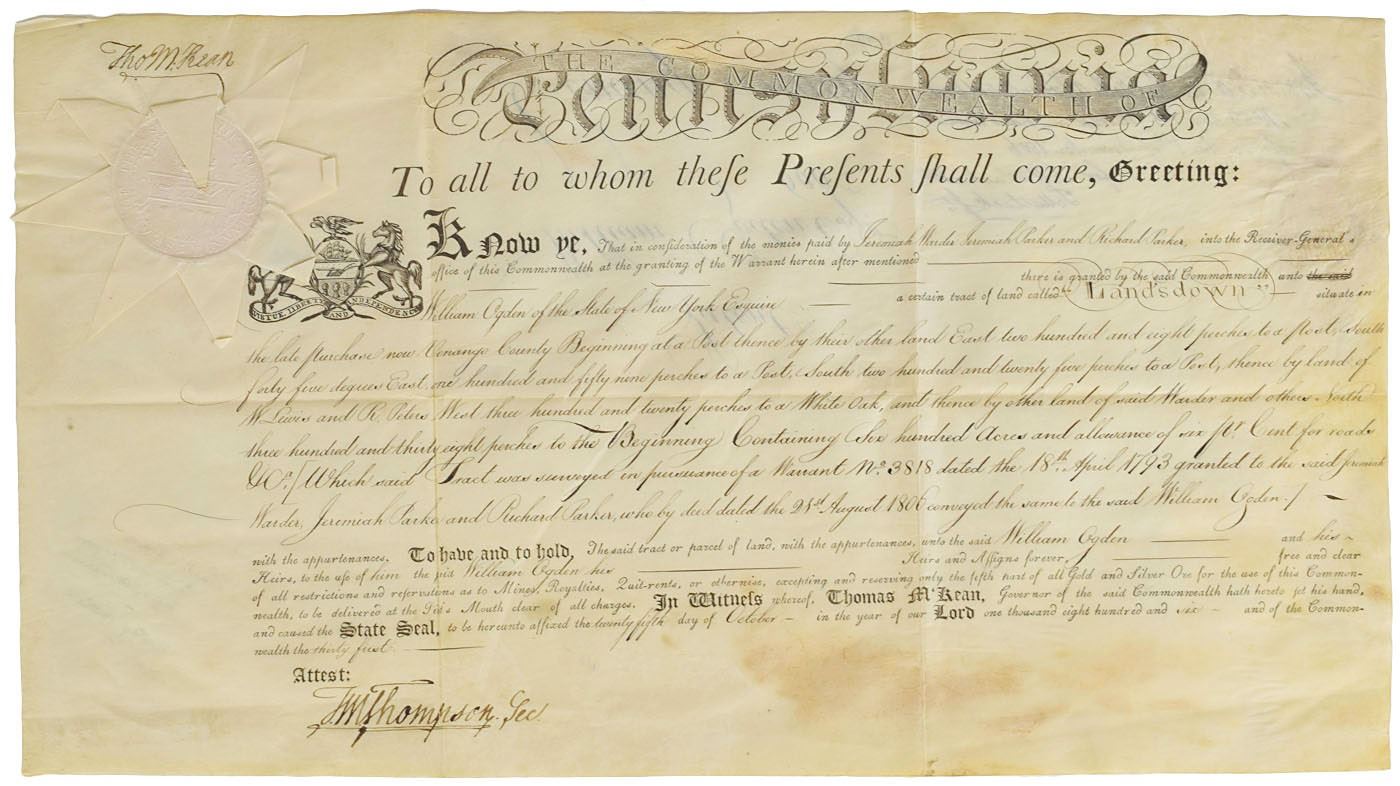 Tho M:Kean
THE COMMONWEALTH OF
Pennsylvania
To all to whom theſe Preſents ſhall come, Greeting:
Know ye, That in consideration of the monies paid by Jeremiah Warder Jeremiah Parker and Richard Parker, into the Receiver-General's
office of this Commonwealth at the granting of the Warrant herein after mentioned there is granted by the said Commonwealth unto the said
VIRTUE LIBERTY AND INDEPENDENCE
William Ogden of the State of New York Esquire a certain tract of land called "Landsdown" situate in
the late purchase now Venango County Beginning at a Post thence by their other land East two hundred and eight perches to a Post, South
forty five degees East one hundred and fifty nine perches to a Post, South two hundred and twenty five perches to a Post, thence by land of
W Lewis and R. Peters West three hundred and twenty perches to a White Oak, and thence by other land of said Warder and others North
three hundred and thirty eight perches to the Beginning Containing Six hundred Acres and allowance of six pr. Cent for roads
&c. / Which said Tract was surveyed in pursuance of a Warrant No. 3818 dated the 18th. April 1793 granted to the said Jeremiah
Warder, Jeremiah Parke and Richard Parker, who by deed dated the 21st August 1806 conveyed the same to the said William Ogden /
with the appurtenances. To have and to hold, The said tract or parcel of land, with the appurtenances, unto the said William Ogden and his
Heirs, to the uſe of him the ſaid William Ogden his Heirs and Aſsigns forever, free and clear
of all restrictions and reſervations as to Mines, Royalties, Quit-rents, or otherwise, excepting and reserving only the fifth part of all Gold and Silver Ore for the use of this Common-
wealth, to be delivered at the Pit's Mouth clear of all charges. In Witneſs whereof, Thomas M'Kean, Governor of the said Commonwealth hath hereto ſet his hand,
and cauſed the State Seal, to be hereunto aſſixed the twenty fifth day of October in the year of our Lord one thousand eight hundred and six and of the Common-
wealth the thirty first.
Attest:
TMThompson. Sec.